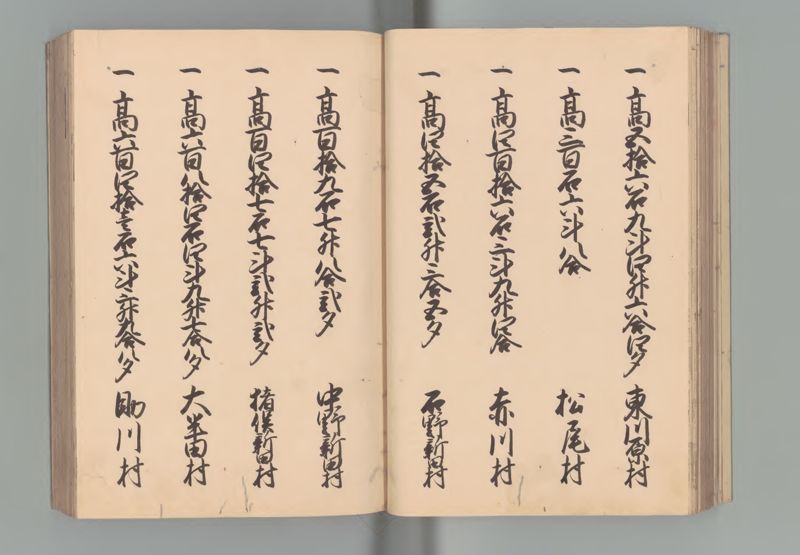 一 高五拾六石九斗四升六合四夕 東川原村
一 高三百石六斗八合 松尾村
一 高四百拾六石三斗九升四合 赤川村
一 高四拾五石弐升三合五夕 石野新田村
一 高百拾九石七升八合弐夕 中野新田村
一 高百四拾七石七斗弐升弐夕 猪俣新田村
一 高六百八拾四石四斗九升七合八夕 大半田村
一 高六百四拾壱石六斗六升九合八夕 助川村